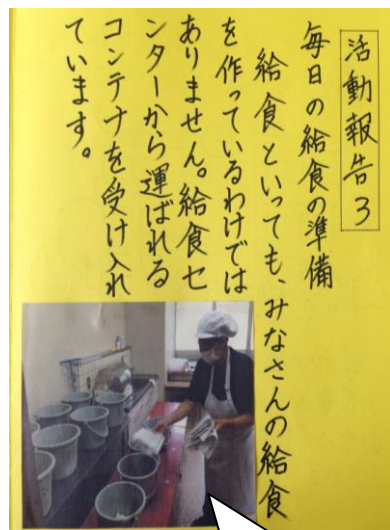 活動報告3
毎日の給食の準備
給食といっても、みなさんの給食
を作っているわけでは
ありません。給食セ
ンターから運ばれる
コンテナを受け入れ
ています。